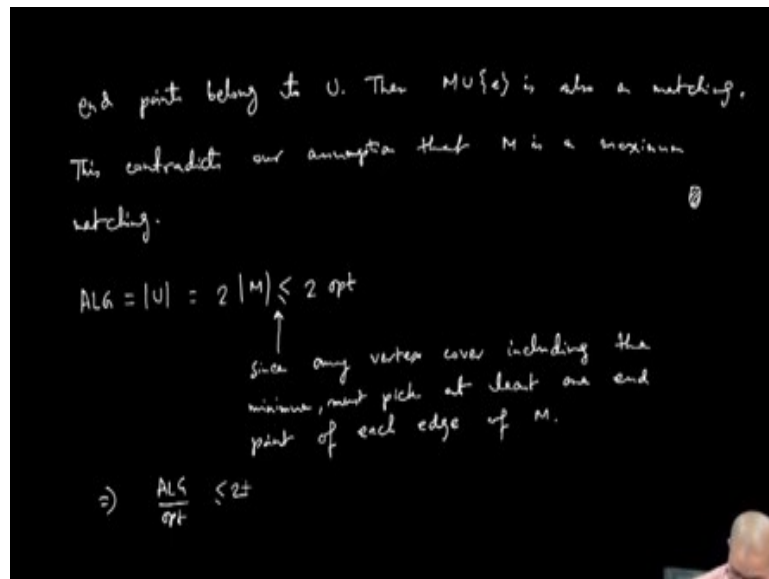 end points belong to U. Then M∪{e} is also a matching.
This contradicts our assumption that M is a maximum
matching.
ALG = |U| = 2|M| ≤ 2 opt
↑
since any vertex cover including the
minimum, must pick at least one end
point of each edge of M.
⇒ ALG/opt ≤ 2